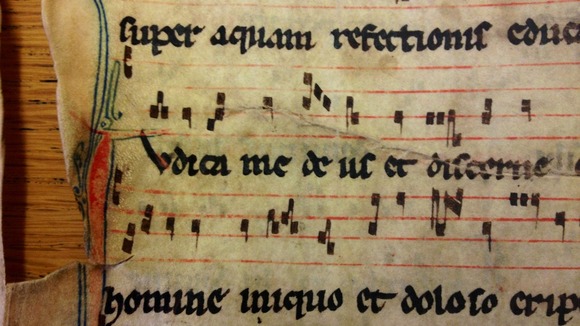 super aquam refectionis educa
Iudica me de us et discerne
homine iniquo et doloso erip